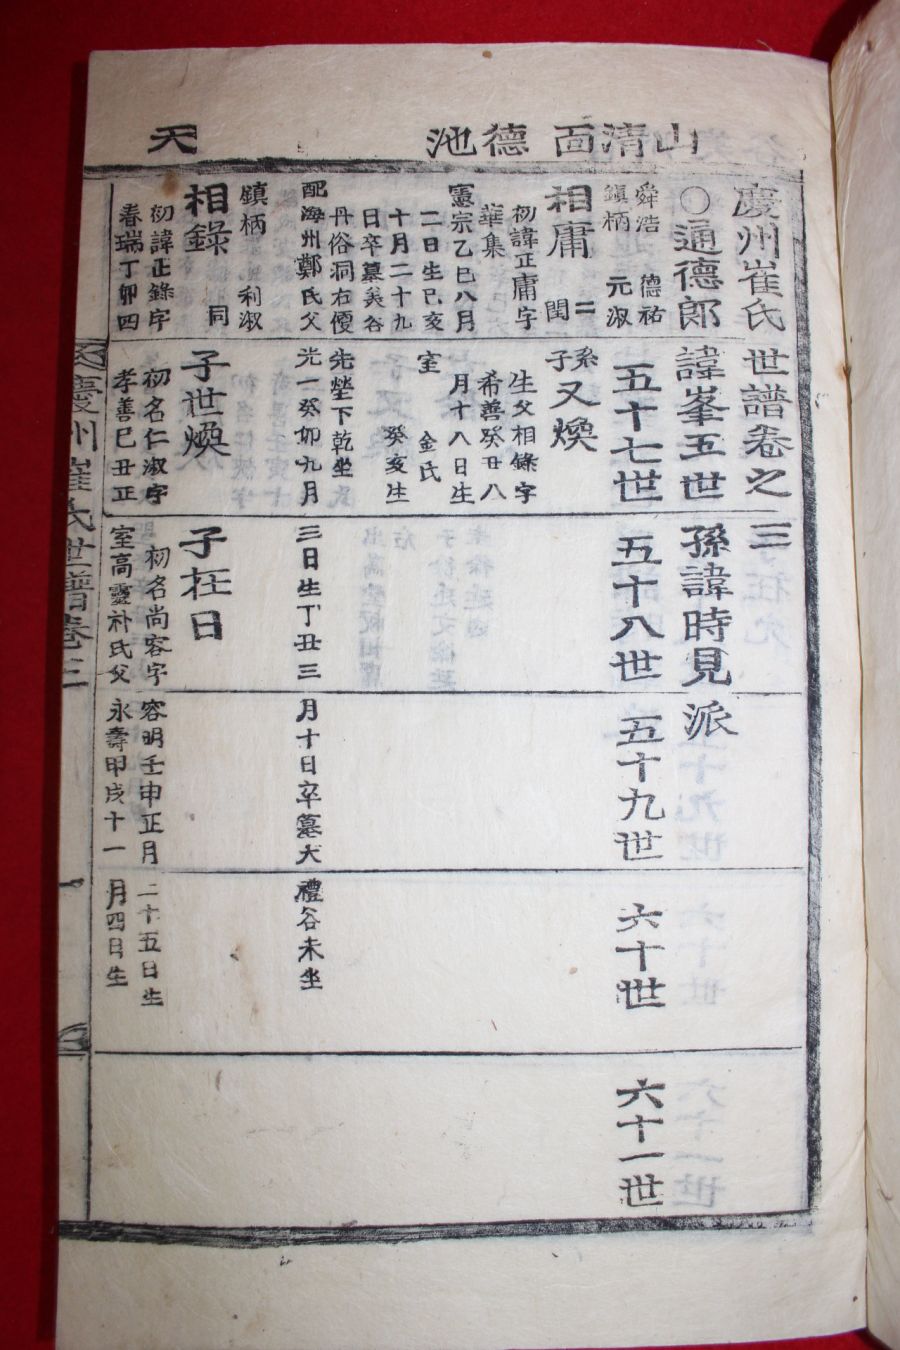 山清面 德池
天
慶州崔氏世譜卷之三
○通德郎諱峯五世孫諱時見派
舜浩 德祐
鎭柄 元淑
五十七世
五十八世
五十九世
六十世
六十一世
相庸 二
閏
初諱正庸字
華集
憲宗乙巳八月
二日生己亥
十月二十九
日卒墓美谷
丹俗洞右便
配海州鄭氏父
孫
子又煥
生父相錄字
希善癸丑八
月十八日生
室 金氏
癸亥生
先塋下乾坐
光一癸卯九月
三日生丁丑三
月十日卒墓大
禮谷未坐
鎭柄 利淑
相錄 同
初諱正錄字
春瑞丁卯四
子世煥
初名仁淑字
孝善己丑正
子在日
初名尚容字
容明壬申正月
二十五日生
室高靈朴氏父
永壽甲戌十一
月四日生
慶州崔氏世譜卷三